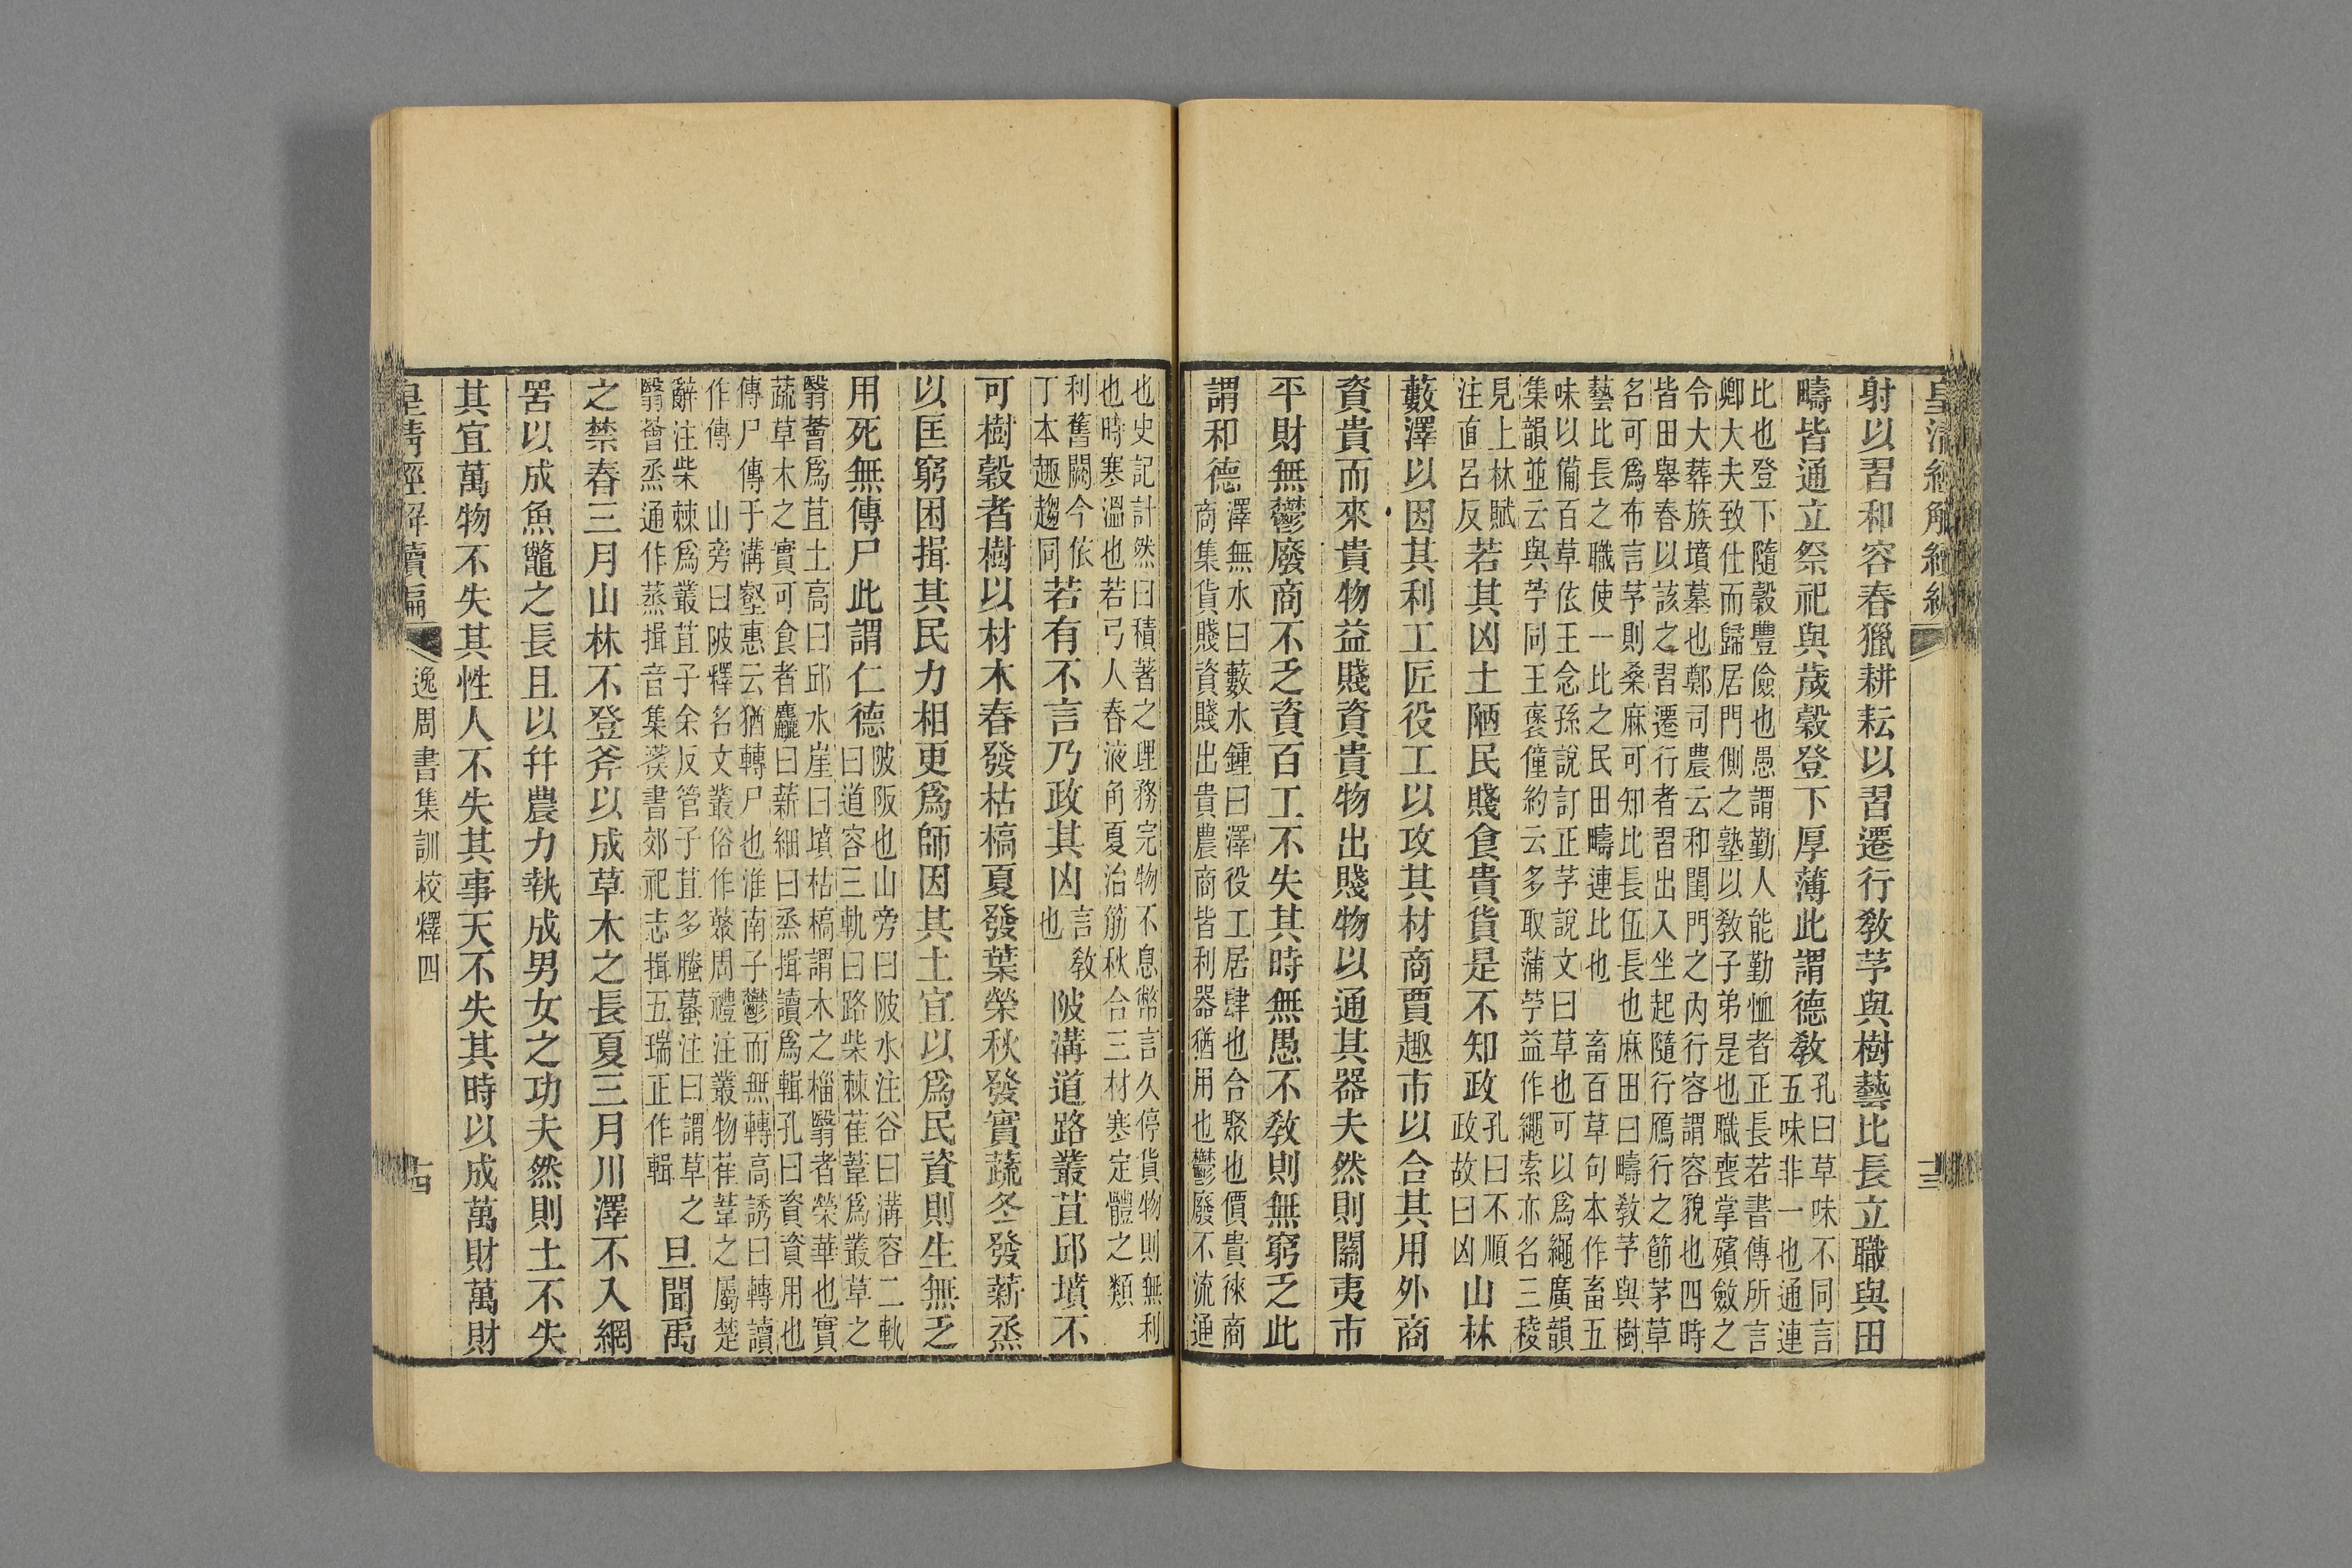 射以習和容春獵耕耘以習遷行教芧與樹藝比長立職與田
疇皆通立祭祀與歲穀登下厚薄此謂德教孔曰草味不同言
五味非一也通連
比也登下隨穀豐儉也愚謂勤人能勤恤者正長若書傳所言
卿大夫致仕而歸居門側之塾以教子弟是也職喪掌殯斂之
令大葬族墳墓也鄭司農云和閨門之內行容謂容貌也四時
皆田舉春以該之習遷行者習出入坐起隨行鴈行之節茅草
名可為布言芧則桑麻可知比長伍長也麻田曰疇教芧與樹
藝比長之職使一比之民田疇連比也畜百草句本作畜五
味以備百草依王念孫說訂正芧說文曰草也可以為繩廣韻
集韻並云與苧同王褒僮約云多取蒲苧益作繩索亦名三稜
見上林賦
注直呂反若其凶土陋民賤食貴貨是不知政孔曰不順
政故曰凶山林
藪澤以因其利工匠役工以攻其材商賈趣市以合其用外商
資貴而來貴物益賤資貴物出賤物以通其器夫然則關夷市
平財無鬱廢商不乏資百工不失其時無愚不教則無窮乏此
謂和德澤無水曰藪水鍾曰澤役工居肆也合聚也價貴徠商
商集貨賤資賤出貴農商皆利器猶用也鬱廢不流通
也史記計然曰積著之理務完物不息幣言久停貨物則無利
也時寒溫也若弓人春液角夏治筋秋合三材寒定體之類
利舊闕今依
丁本趣趨同若有不言乃政其凶言教
也陂溝道路叢苴邱墳不
可樹穀者樹以材木春發枯槁夏發葉榮秋發實蔬冬發薪烝
以匡窮困揖其民力相更為師因其土宜以為民資則生無乏
用死無傳尸此謂仁德陂阪也山旁曰陂水注谷曰溝容二軌
曰道容三軌曰路柴棘萑葦為叢草之
翳薈為苴土高曰邱水崖曰墳枯槁謂木之椔翳者榮華也實
蔬草木之實可食者麤曰薪細曰烝揖讀為輯孔曰資資用也
傳尸傳于溝壑惠云猶轉尸也淮南子鬱而無轉高誘曰轉讀
作傳　山旁曰陂釋名文叢俗作藂周禮注叢物萑葦之屬楚
辭注柴棘為叢苴子余反管子苴多螣蟇注曰謂草之
翳薈烝通作蒸揖音集漢書郊祀志揖五瑞正作輯旦聞禹
之禁春三月山林不登斧以成草木之長夏三月川澤不入網
罟以成魚鼈之長且以幷農力執成男女之功夫然則土不失
其宜萬物不失其性人不失其事天不失其時以成萬財萬財
皇清經解續編　逸周書集訓校釋四